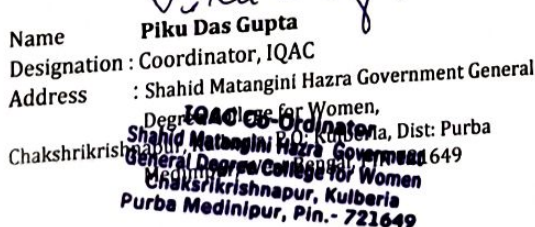 Name Piku Das Gupta
Designation : Coordinator, IQAC
Address : Shahid Matangini Hazra Government General
Degree College for Women,
Chakshrikrishnapur, P.O: Kulberia, Dist: Purba
Medinipur, West Bengal, 721649
IQAC Co-Ordinator
Shahid Matangini Hazra Government
General Degree College for Women
Chaksrikrishnapur, Kulberia
Purba Medinipur, Pin.- 721649